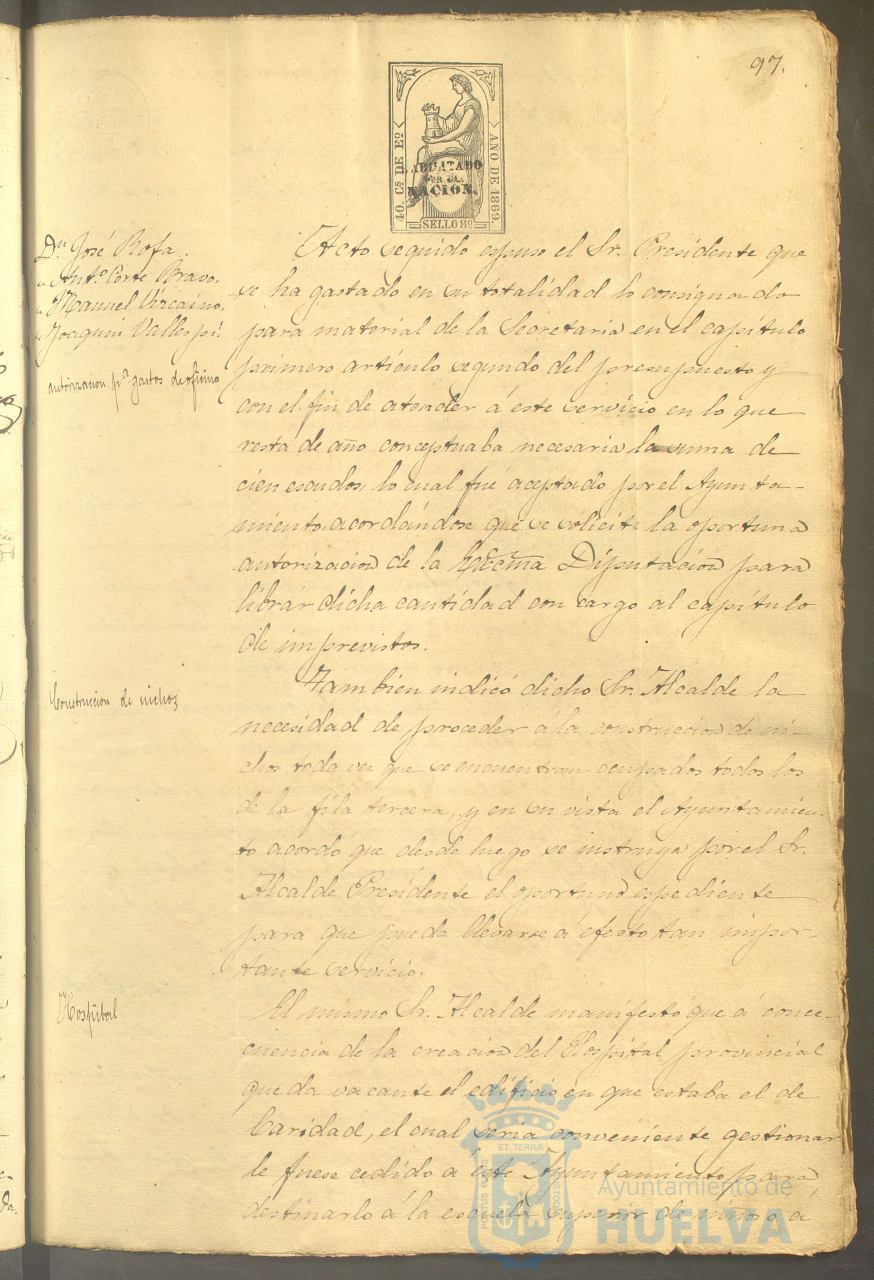 97.
10 Cs DE Eo
AÑO DE 1869.
HABILITADO
POR LA
NACION.
SELLO 8º
Dn José Rofa.
" Antº Corte Bravo.
" Manuel Vizcaino.
" Joaquin Vallespi.
autorizacion pª gastos de oficina
Acto seguido espuso el Sr. Presidente que
se ha gastado en su totalidad lo consignado
para material de la Secretaria en el capítulo
primero artículo segundo del presupuesto y
con el fin de atender á este servicio en lo que
resta de año conceptuaba necesaria la suma de
cien escudos, lo cual fué aceptado por el Ayunta-
miento, acordándose que se solicite la oportuna
autorizacion de la Excma Diputacion para
librar dicha cantidad con cargo al capítulo
de imprevistos.
Construccion de nichos
Tambien indicó dicho Sr. Alcalde la
necesidad de proceder á la construccion de ni-
chos toda vez que se encuentran ocupados todos los
de la fila tercera, y en su vista el Ayuntamien-
to acordó que desde luego se instruya por el Sr.
Alcalde Presidente el oportuno espediente
para que pueda llevarse á efecto tan impor-
tante servicio.
Hospital
El mismo Sr. Alcalde manifestó que á conse-
cuencia de la creacion del Hospital provincial
queda vacante el edificio en que estaba el de
Caridad, el cual sería conveniente gestionar
le fuese cedido á este Ayuntamiento para
destinarlo á la escuela superior de niños á
ET TERRÆ
Ayuntamiento de
HUELVA